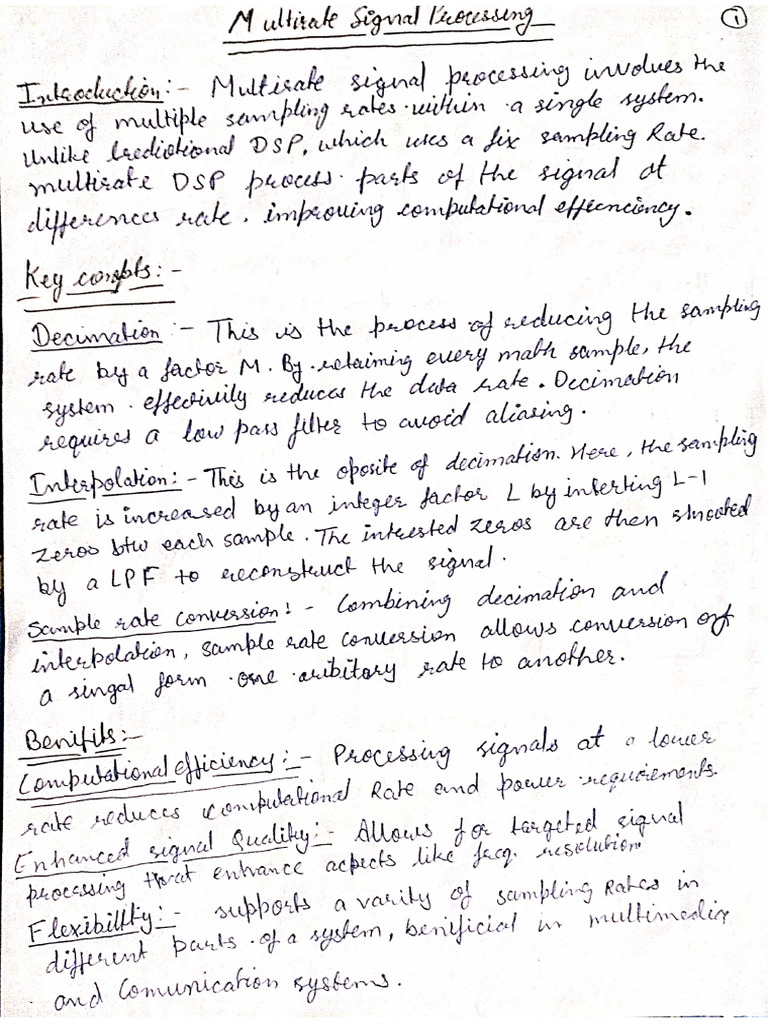 Multirate Signal Processing
1
Introduction:- Multirate signal processing involves the
use of multiple sampling rates within a single system.
Unlike tredictional DSP, which uses a fix sampling Rate.
multirate DSP process parts of the signal at
differences rate, improving computational effeciencency.
Key concepts:-
Decimation:- This is the process of reducing the sampling
rate by a factor M. By retaining every math sample, the
system effectivily reduces the data rate. Decimation
requires a low pass filter to avoid aliasing.
Interpolation:- This is the oposite of decimation. Here, the sampling
rate is increased by an integer factor L by interting L-1
zeros btw each sample. The intersted zeros are then smooted
by a LPF to reconstruct the signal.
Sample rate conversion:- Combining decimation and
interpolation, sample rate conversion allows conversion of
a singal form one aribitory rate to another.
Benifits:-
Computational efficiency:- Processing signals at a lower
rate reduces computational Rate and power requirements.
Enhanced signal Quality:- Allows for targeted signal
processing that enhance acpects like freq. resolution
Flexibility:- supports a varity of sampling Rates in
different parts of a system, benificial in multimedia
and Comunication systems.